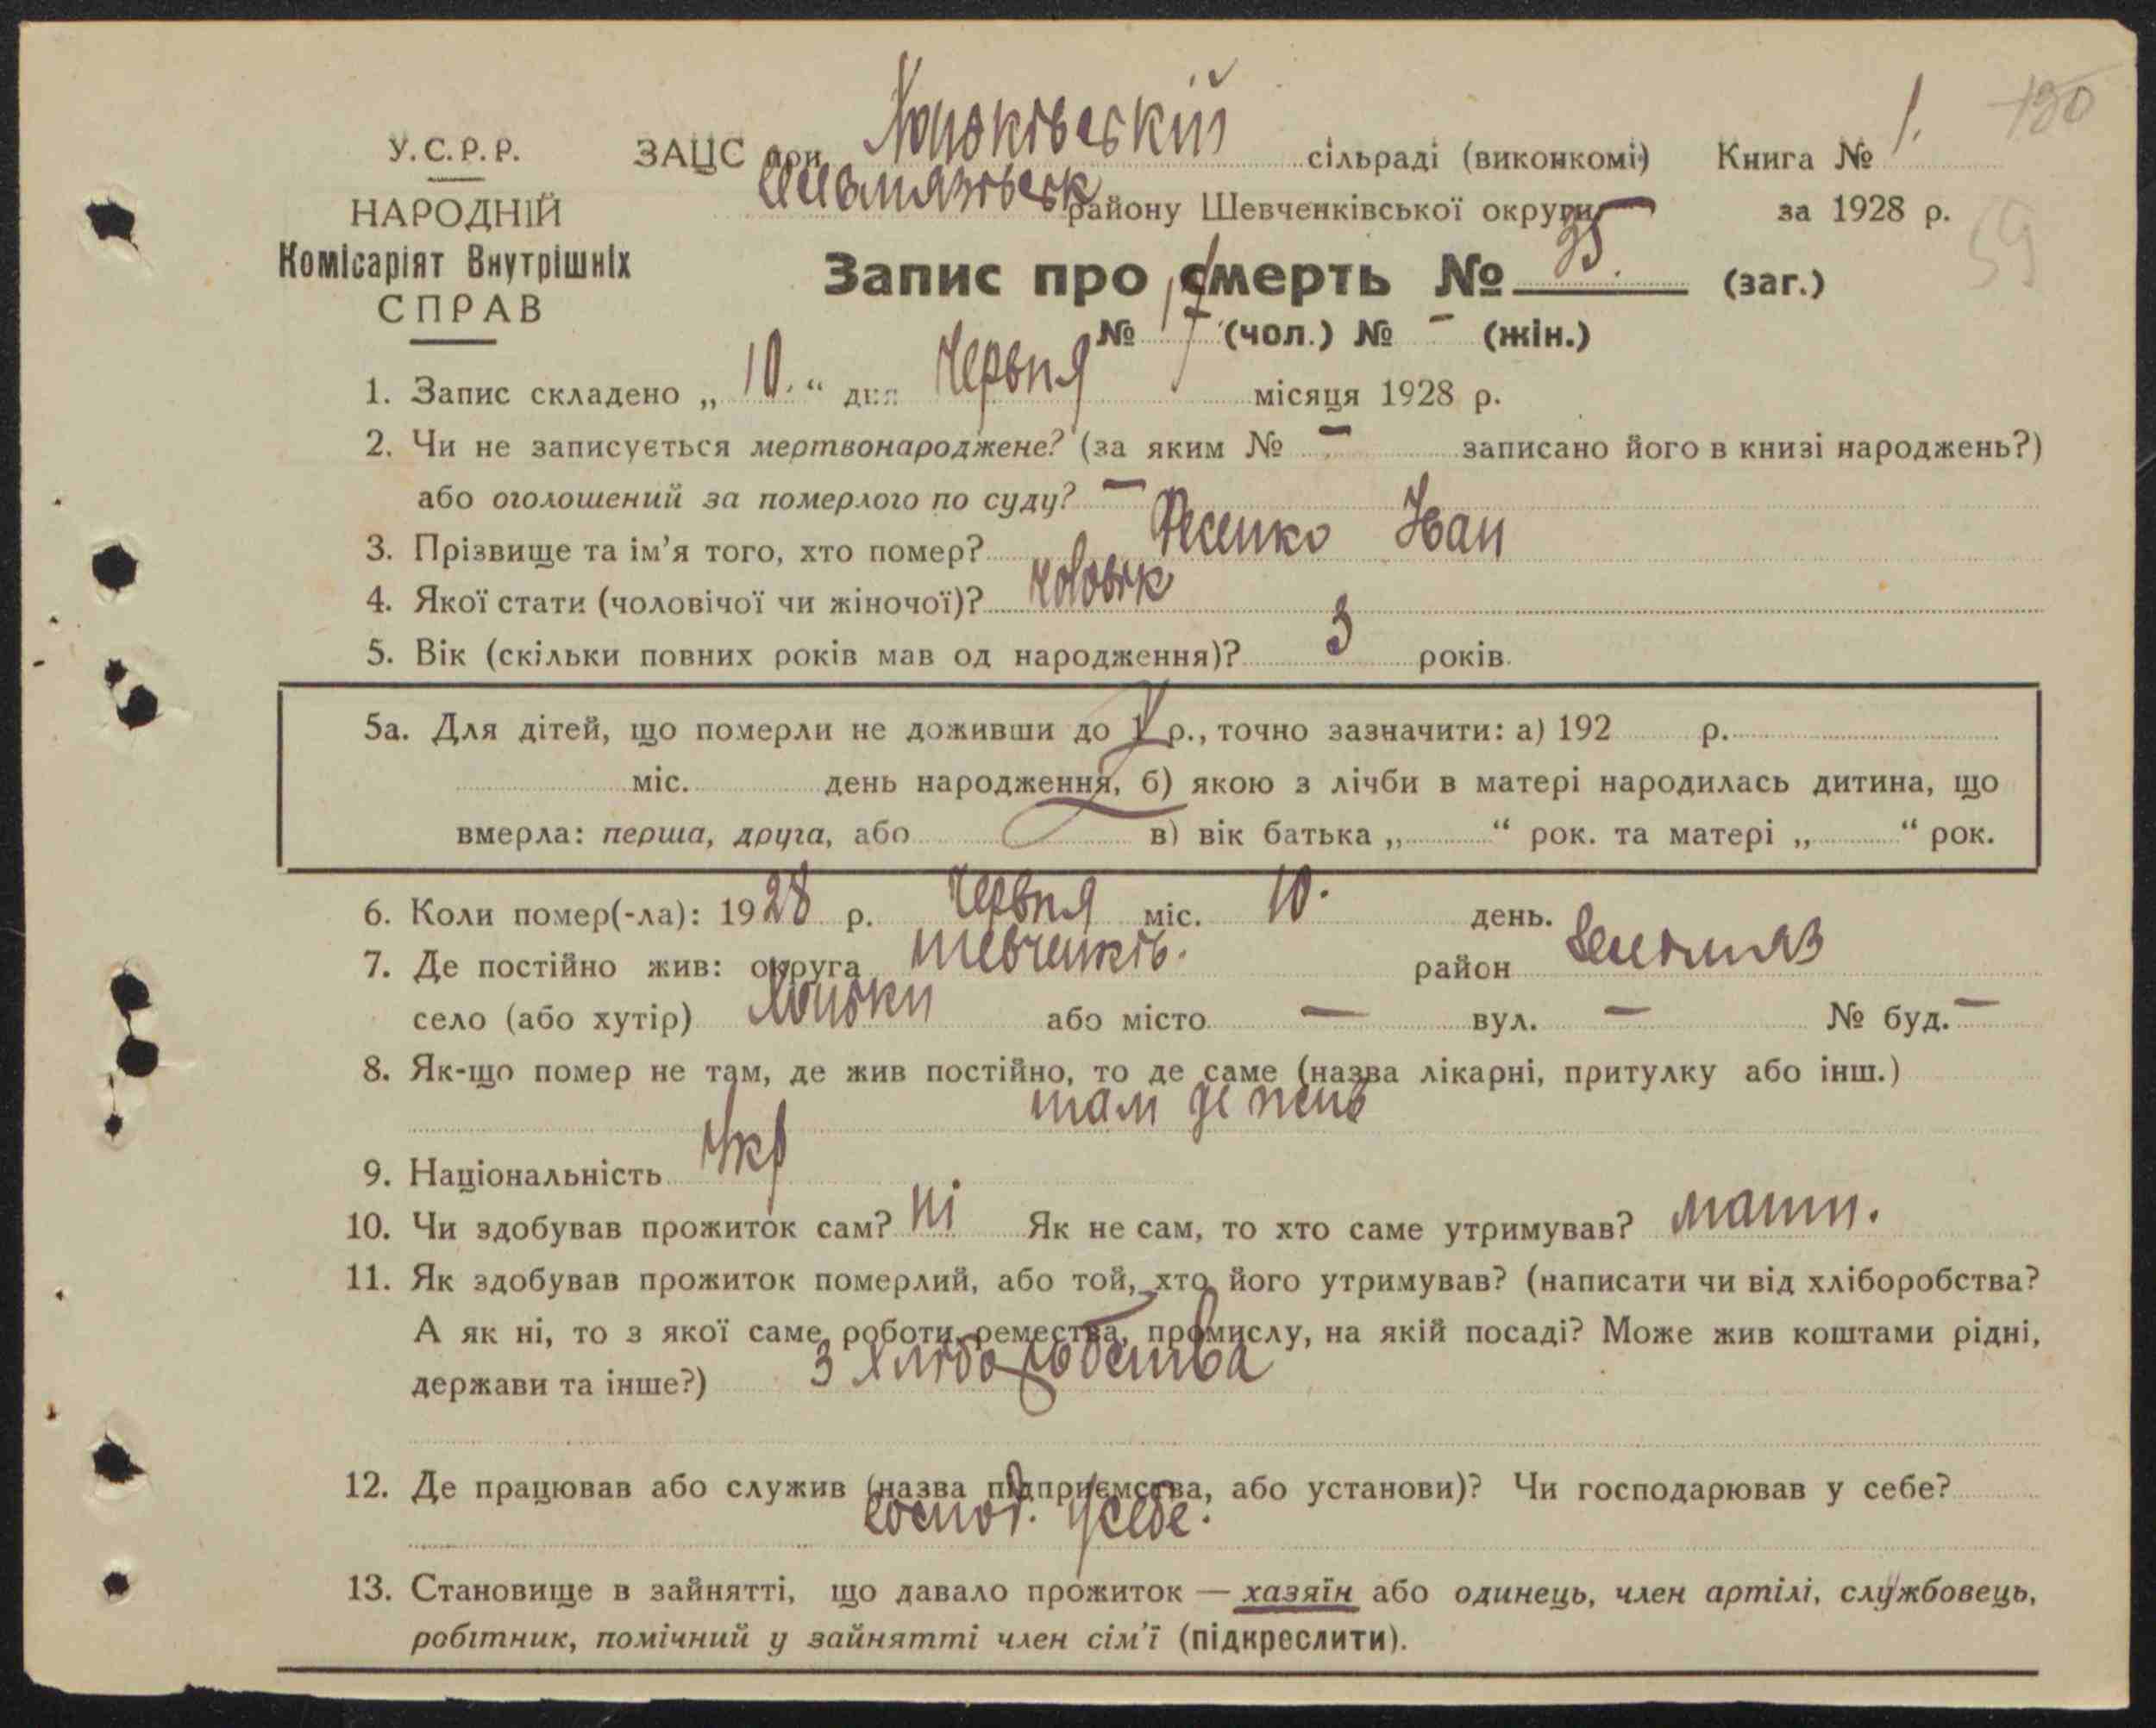 130
У.С.Р.Р. ЗАЦС при Хоцьківській сільраді (виконкомі) Книга № 1.
НАРОДНІЙ району Шевченківської округи за 1928 р.
59
Комісаріят Внутрішніх
СПРАВ
Запис про смерть № 35. (заг.)
№ 17 (чол.) № - (жін.)
1. Запис складено „10.“ дня Червня місяця 1928 р.
2. Чи не записується мертвонароджене? (за яким № - записано його в книзі народжень?)
або оголошений за померлого по суду? -
3. Прізвище та ім'я того, хто помер? Фесенко Іван
4. Якої стати (чоловічої чи жіночої)? чоловік
5. Вік (скільки повних років мав од народження)? 3 років.
5а. Для дітей, що померли не доживши до 1 р., точно зазначити: а) 192 р.
міс. день народження, б) якою з лічби в матері народилась дитина, що
вмерла: перша, друга, або в) вік батька „ “ рок. та матері „ “ рок.
6. Коли помер(-ла): 1928 р. Червня міс. 10. день.
7. Де постійно жив: округа Шевченків. район
село (або хутір) Хоцьки або місто — вул. — № буд. —
8. Як-що помер не там, де жив постійно, то де саме (назва лікарні, притулку або інш.)
там де жив
9. Національність Укр
10. Чи здобував прожиток сам? Ні Як не сам, то хто саме утримував? мати.
11. Як здобував прожиток померлий, або той, хто його утримував? (написати чи від хліборобства?
А як ні, то з якої саме роботи, ремества, промислу, на якій посаді? Може жив коштами рідні,
держави та інше?) З хліборобства
12. Де працював або служив (назва підприємства, або установи)? Чи господарював у себе?
Господ. у себе.
13. Становище в зайнятті, що давало прожиток — хазяїн або одинець, член артілі, службовець,
робітник, помічний у зайнятті член сім'ї (підкреслити).